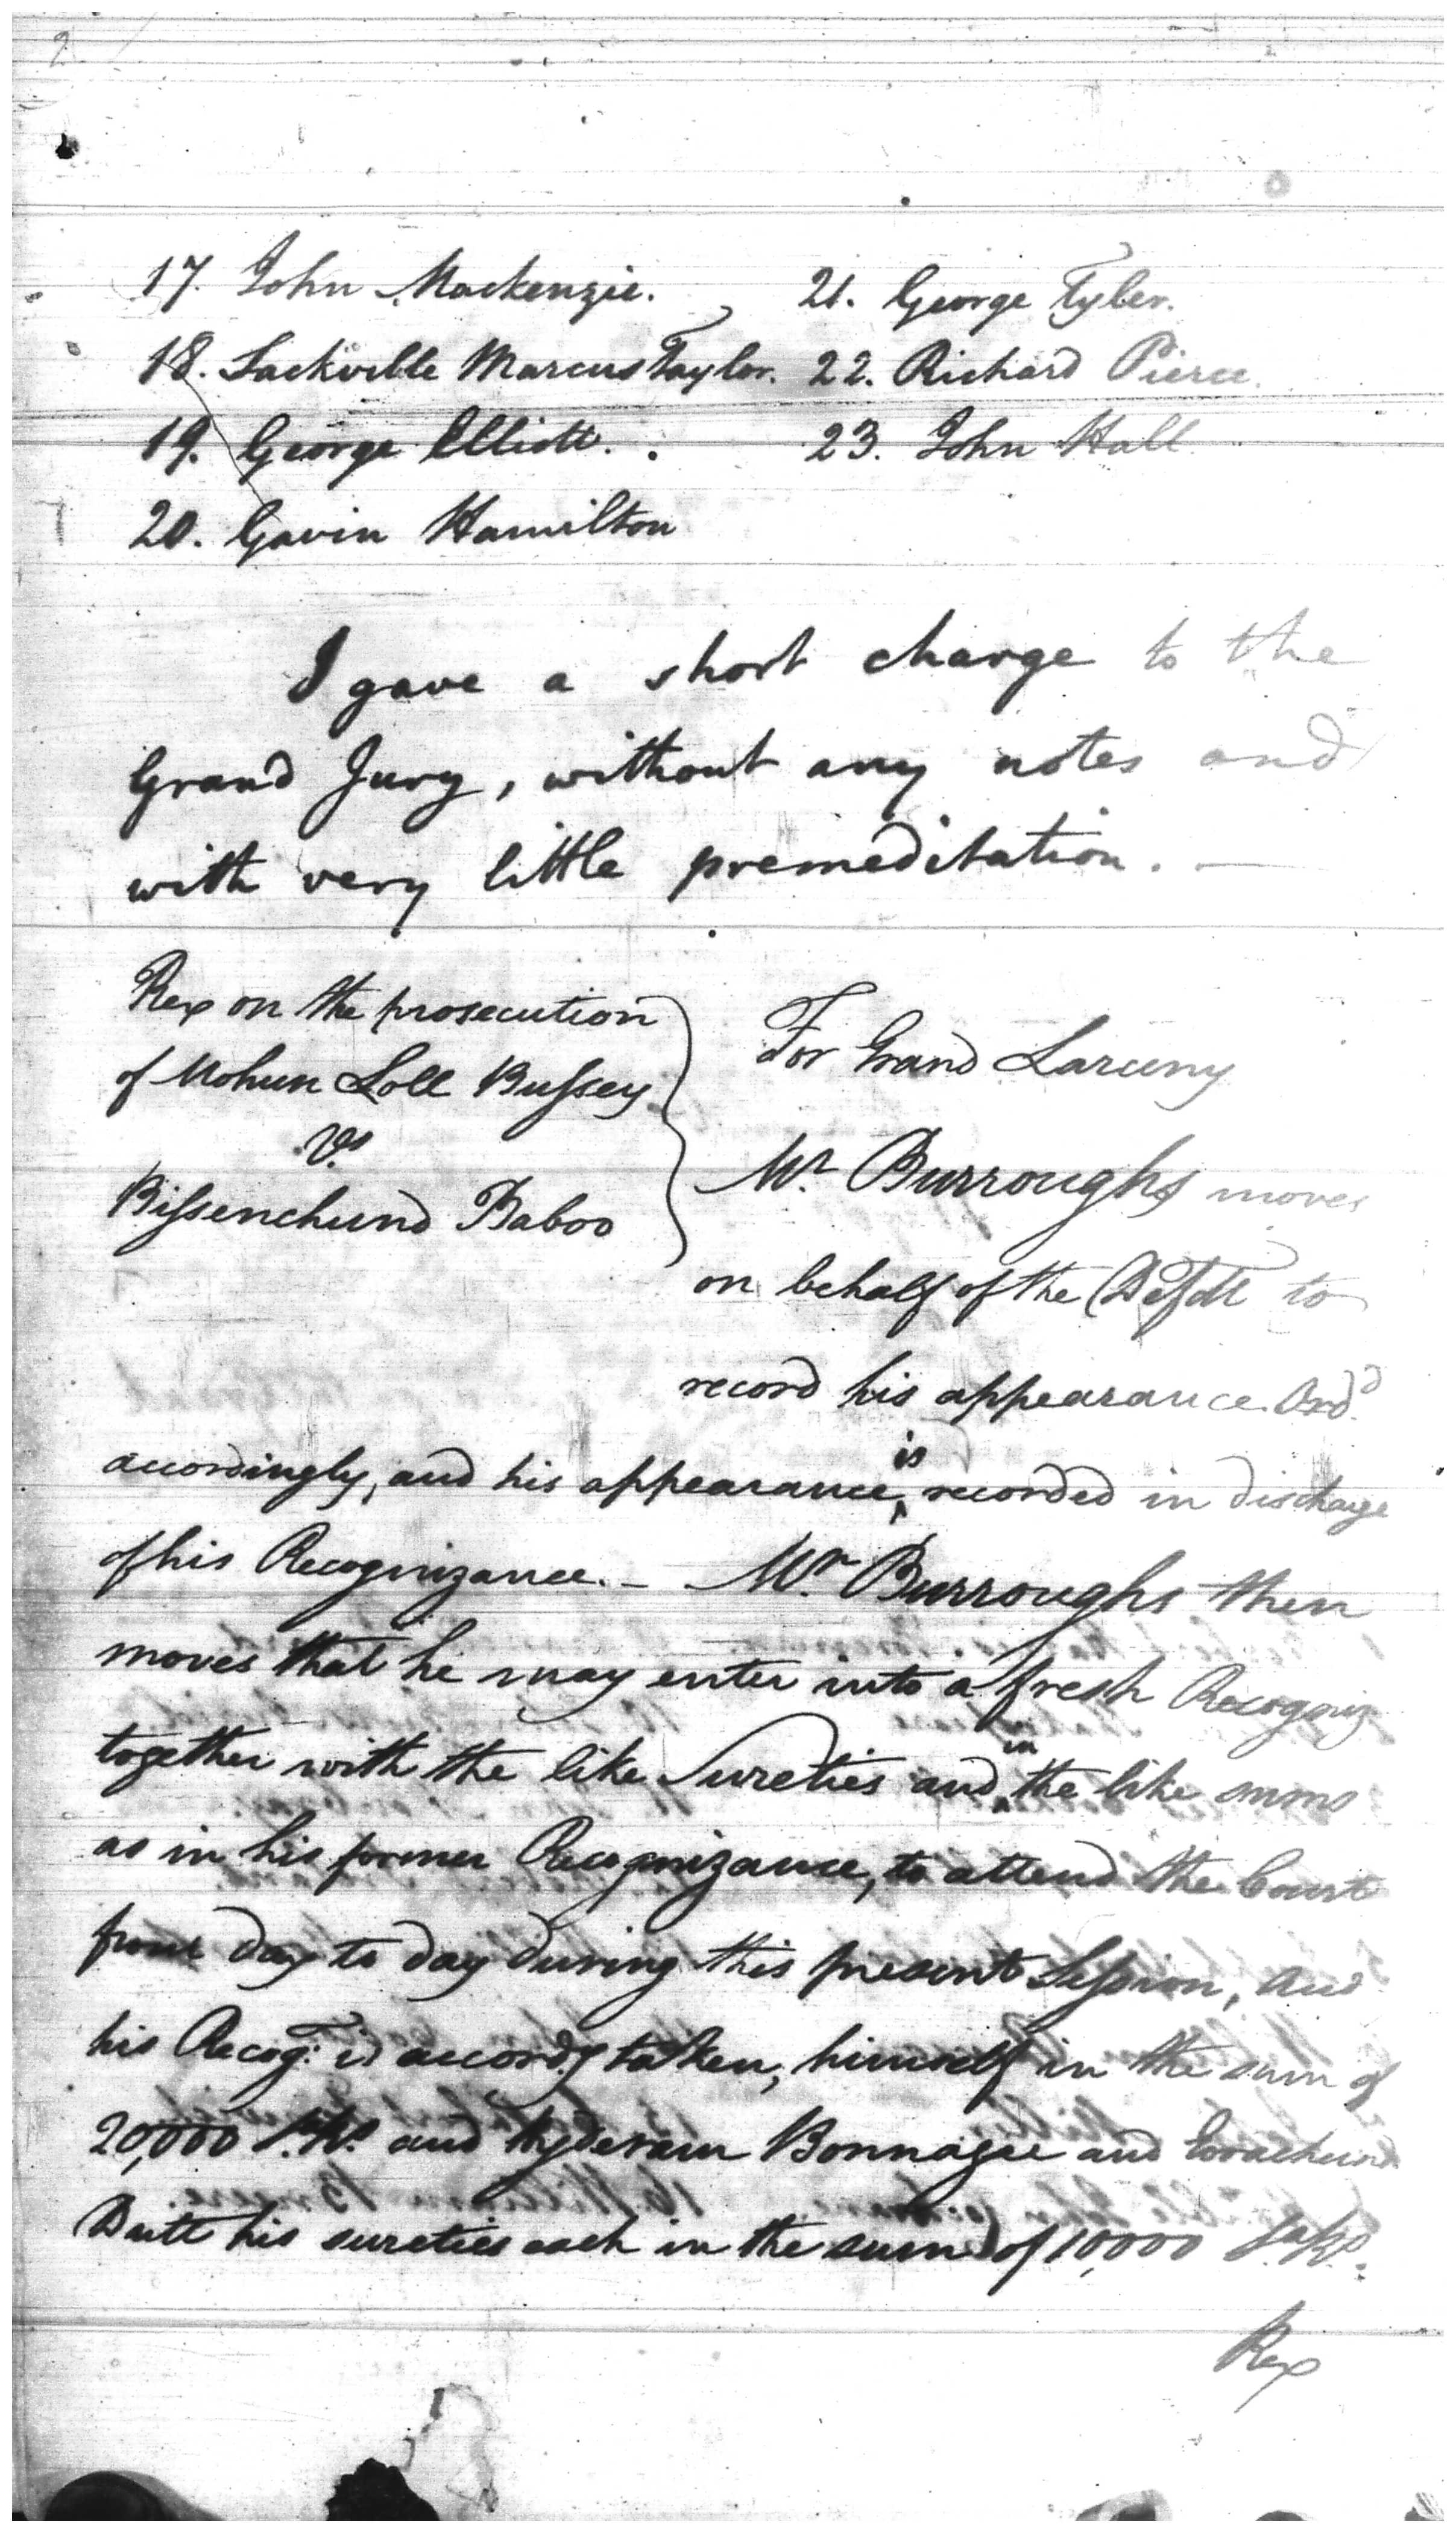 2
17. John Mackenzie. 21. George Tyler.
18. Sackville Marcus Taylor. 22. Richard Pierce.
19. George Elliott. 23. John Hall
20. Gavin Hamilton
I gave a short charge to the
Grand Jury, without any notes and
with very little premeditation. —
Rex on the prosecution
of Mohun Loll Bussey
Vs
Bissenchund Baboo
For Grand Larceny
Mr. Burroughs moves
on behalf of the Defdt to
record his appearance. Ord.d
accordingly, and his appearance is recorded in discharge
of his Recognizance. – Mr. Burroughs then
moves that he may enter into a fresh Recogniz
together with the like Sureties and in the like sums
as in his former Recognizance, to attend the Court
from day to day during this present Session, and
his Recog: is accordg taken, himself in the sum of
20,000 S.Rs and Bonnagee and
Dutt his sureties each in the sum of 10,000 Sa.Rs.
Rex